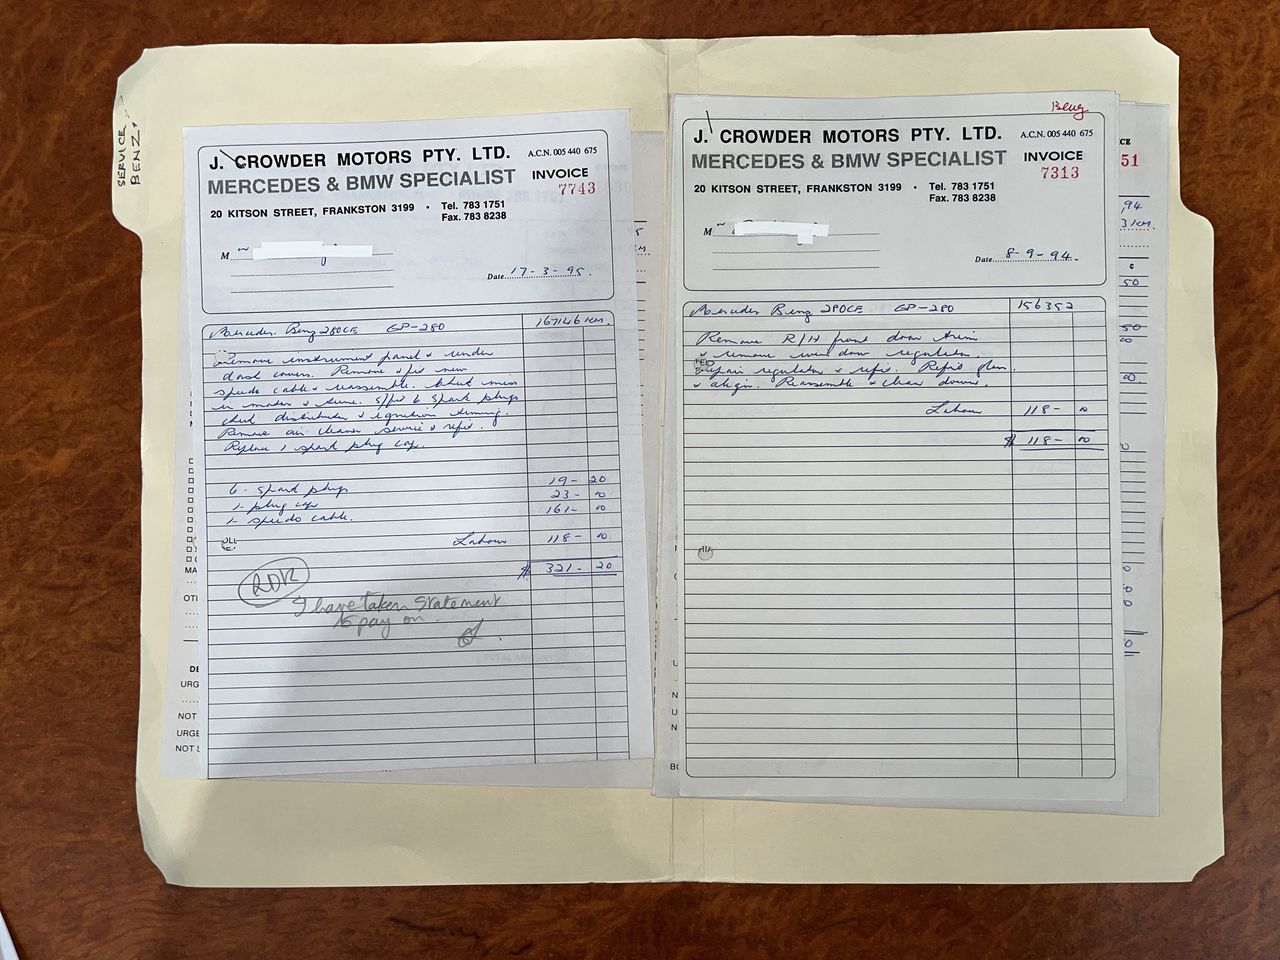 SERVICE
BENZ
J. CROWDER MOTORS PTY. LTD.
A.C.N. 005 440 675
MERCEDES & BMW SPECIALIST
INVOICE
7743
20 KITSON STREET, FRANKSTON 3199 • Tel. 783 1751
Fax. 783 8238
M
Date 17-3-95.
Mercedes Benz 280CE GP-280 167146 KM.
Remove instrument panel & under
dash covers. Remove & fit new
speedo cable & reassemble. Check miss
in motor & tune. S/fit 6 spark plugs
check distributor & ignition timing.
Remove air cleaner service & refit.
Replace 1 spark plug cap.
6- spark plugs 19- 20
1- plug cap 23- 00
1- speedo cable. 161- 00
Labour 118- 00
$ 321- 20
I have taken Statement
to pay on.
MA
OTI
DE
URG
NOT
URGE
NOT S
Benz
J. CROWDER MOTORS PTY. LTD.
A.C.N. 005 440 675
MERCEDES & BMW SPECIALIST
INVOICE
7313
20 KITSON STREET, FRANKSTON 3199 • Tel. 783 1751
Fax. 783 8238
M
Date 8-9-94.
Mercedes Benz 280CE GP-280 156352
Remove R/H front door trim
& remove window regulator.
Repair regulator & refit. Refit glass
& align. Reassemble & clean down.
Labour 118- 00
$ 118- 00
CE
51
94
3 KM.
¢
50
50
00
00